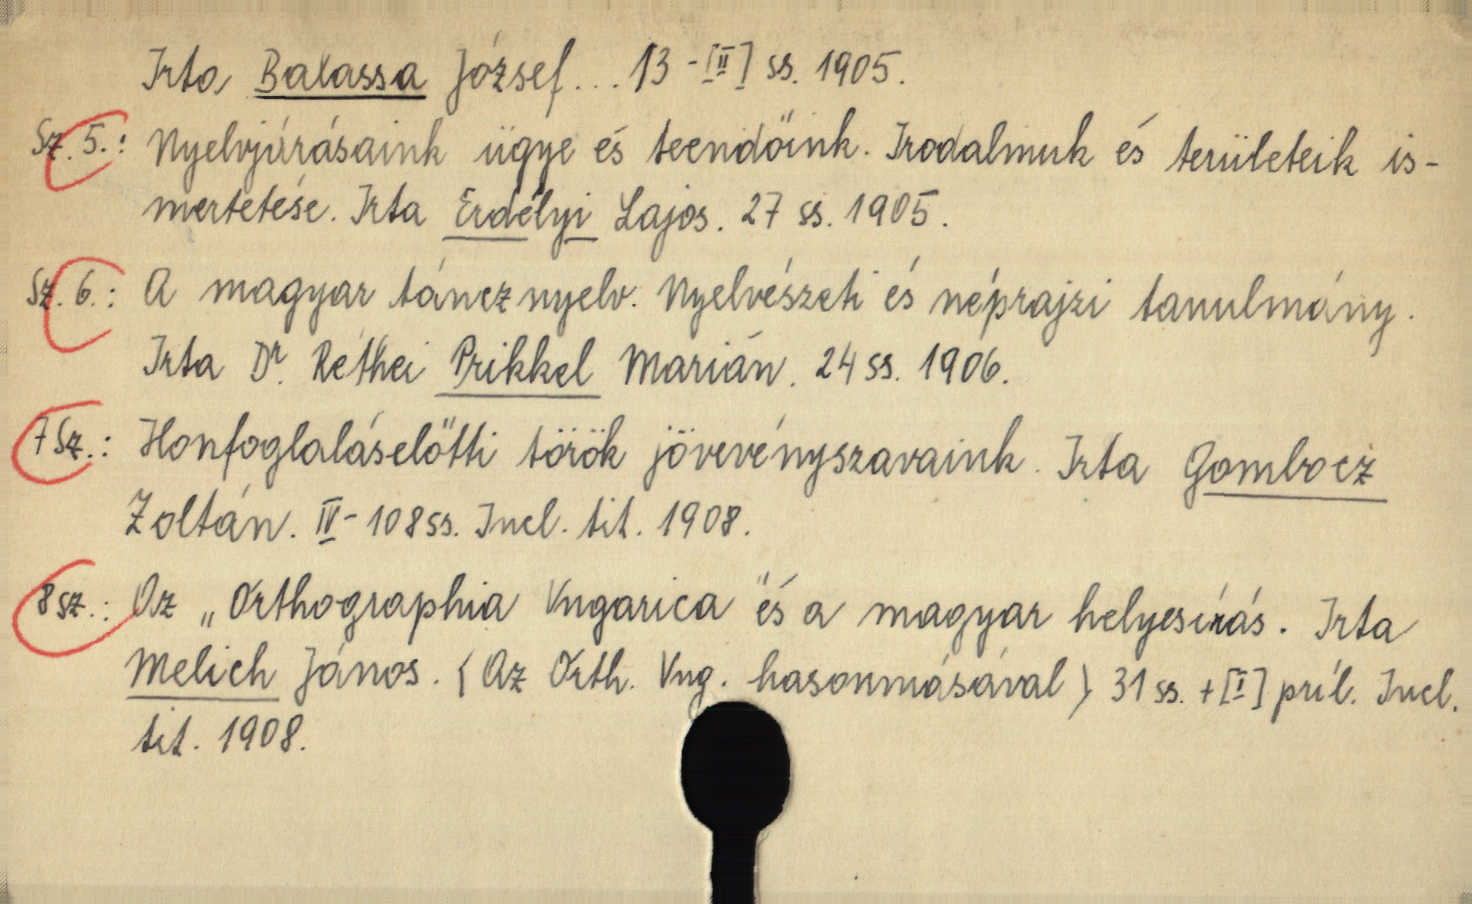 Irta Balassa József... 13 - [II] ss. 1905.
Sz. 5.: Nyelvjárásaink ügye és teendőink. Irodalmuk és területeik is-
mertetése. Irta Erdélyi Lajos. 27 ss. 1905.
Sz. 6.: A magyar táncznyelv. Nyelvészeti és néprajzi tanulmány.
Irta Dr. Réthei Prikkel Marián. 24 ss. 1906.
7 Sz.: Honfoglaláselőtti török jövevényszavaink. Irta Gombocz
Zoltán. IV - 108 ss. Incl. tit. 1908.
8 sz.: Az „Orthographia Vngarica" és a magyar helyesírás. Irta
Melich János. (Az Orth. Vng. hasonmásával) 31 ss. + [I] príl. Incl.
tit. 1908.